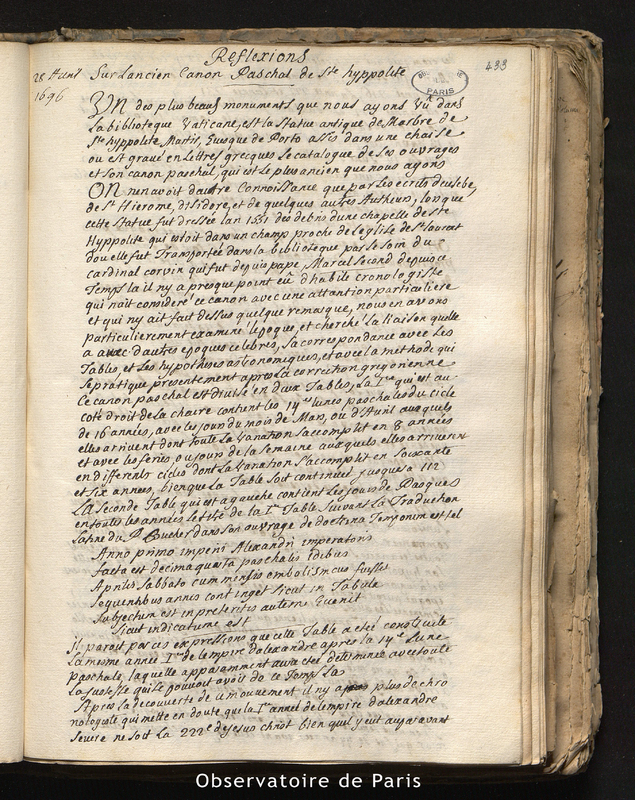 Reflexions
28 Avril Sur Lancien Canon Paschal de Ste hyppolite
1696
433
PARIS
UN des plus beaux monuments que nous ayons Vû dans
La biblioteque Vaticane, est la Statue antique de Marbre de
Ste hyppolite Martir, Evesque de Porto assis dans une chaise
ou est gravé en Lettres grecques Le catalogue de ses ouvrages
et son canon paschal, qui est Le plus ancien que nous ayons
ON nen avoit dautre Connoissance que par Les ecrits deusebe,
de St Hierome, disidore, et de quelques autres Autheurs, lorsque
cette Statue fut dressée lan 1551 des debris dune chapelle de ste
Hyppolite qui estoit dans un champ proche de leglise de St laurent
dou elle fut Transportée dans la biblioteque par le soin du
Cardinal corvin qui fut depuis pape, Marcel Second depuis ce
Temps la il ny a presque point eû d'habile cronologiste
qui nait consideré ce canon avec une attantion particuliere
et qui ny ait fait dessus quelque remarque, nous en avons
particulierement examiné lepoque, et cherché la liaison quelle
a avec d'autres epoques celebres, Sa correspondance avec Les
Tables et Les hypotheses astronomiques, et avec la methode qui
se pratique presentement apres La correction gregorienne
Ce canon paschal est divisé en deux Tables, La 1re qui est au
coté droit de la chaire contient les 14es lunes paschales du cicle
de 16 années, avec les jours du mois de Mars, ou d'Avril auxquels
elles arrivent dont toute La variation saccomplit en 8 années
et avec les feries, ou jours de la Semaine auxquels elles arrivent
en differents cicles dont La variation S'accomplit en Soixante
et Six années, bien que la Table soit continuée jusques a 112
La seconde Table qui est a gauche contient Les jours de Pasques
en toutes les années Le titre de la 1re Table Suivant La Traduction
Latine du P. Boucher dans son ouvrage de doctrina Temporum est tel
Anno primo imperii Alexandri imperatoris
facta est decimaquarta paschalis Idibus
Aprilis Sabbato cum mensis embolismeus fuisset
Sequentibus annis continget sicut in Tabula
Subjectum est in preteritis autem Evenit
Sicut indicatum est
Il paroit par ces expressions que cette Table a eté construite
La mesme année 1re de lempire dalexandre apres la 14e Lune
Paschale, laquelle apparamment avoit eté determinée avec toute
La justesse qui se pouvoit avoir de ce Temps La
Et apres la decouverte de ce mouvement il ny a plus de chro
nologiste qui mette en doute que la 1re année de lempire dalexandre
Severe ne soit La 222e de Jesus christ bien quil y eut auparavant
Observatoire de Paris